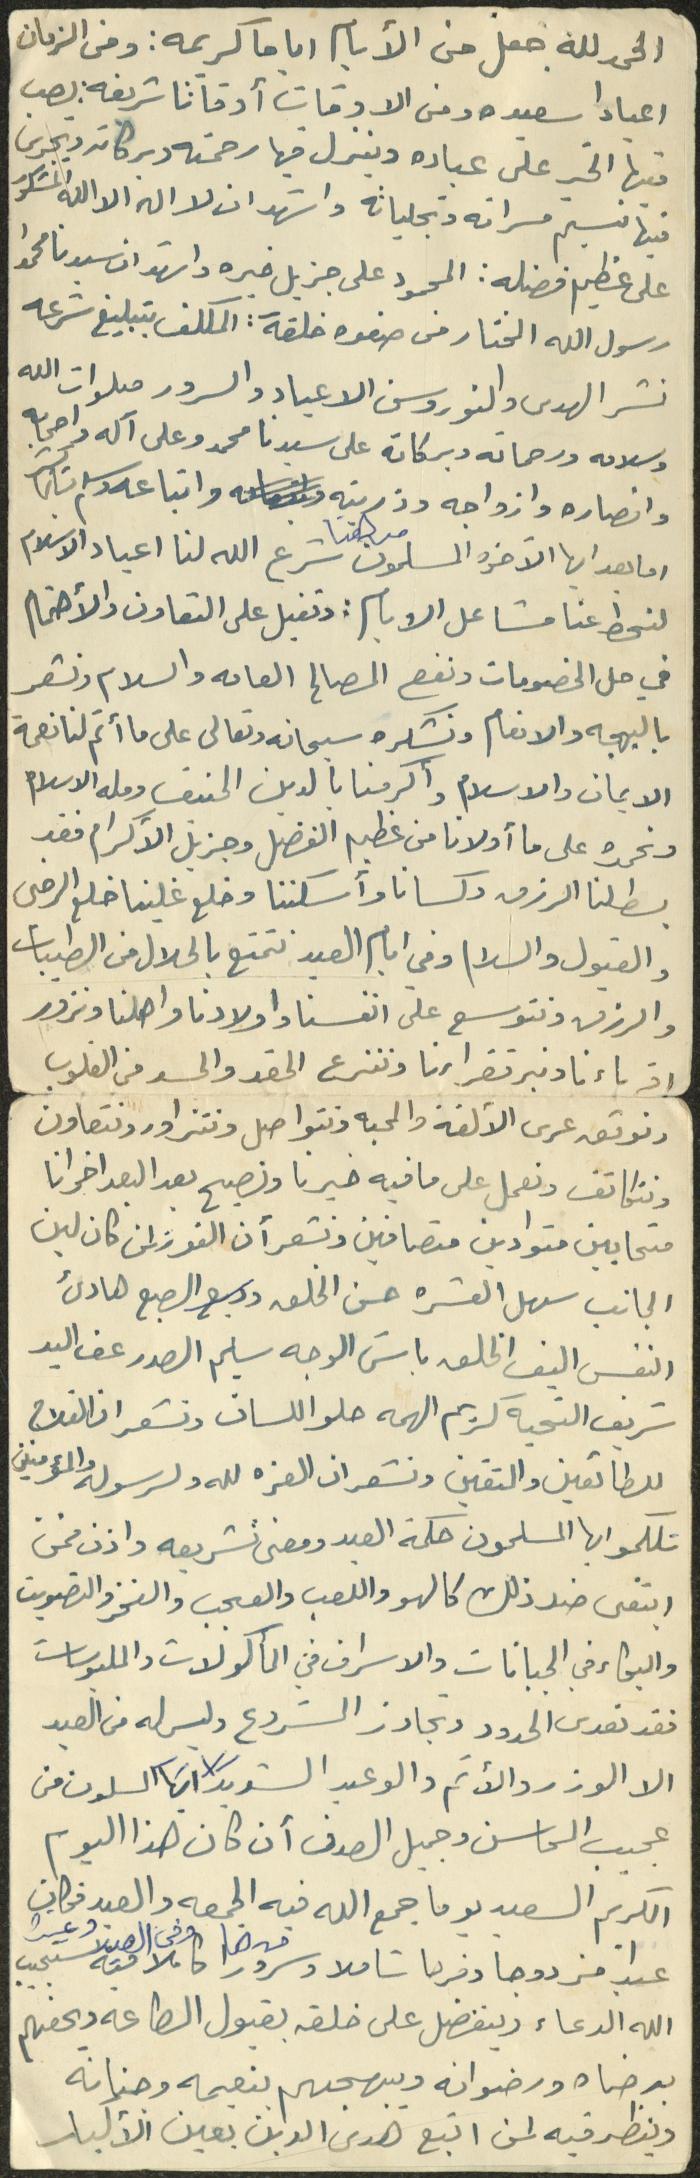 الحمد لله جعل من الأيام اياما كريمه : ومن الزمان
اعيادا سعيده ومن الاوقات أوقاتا شريفه : يصب
فيها الخير على عباده وينزل فيها رحمته وبركاته ويجرى
فيها نسيم مسراته وتجلياته واشهد ان لا اله الا الله المشكور
على عظيم فضله : المحمود على جزيل خيره واشهد ان سيدنا محمدا
رسول الله المختار من صفوه خلقه : المكلف بتبليغ شرعه
نشر الهدى والنور وسن الاعياد والسرور صلوات الله
وسلامه ورحماته وبركاته على سيدنا محمد وعلى آله واصحابه
وانصاره وازواجه وذريته واتباعه وسلم
اما بعد ايها الآخوه المسلمون شرع الله لنا اعياد الاسلام
لنحط عنا مشاعل الايام : ونقبل على التعاون والأهتمام
في حل الخصومات ونفع المصالح العامه والسلام ونشعر
بالبهجه والانعام ونشكره سبحانه وتعالى على ما أتم لنا نعمة
الايمان والاسلام وأكرمنا بالدين الحنيف ومله الاسلام
ونحمده على ما أولانا من عظيم الفضل وجزيل الأكرام فقد
بسط لنا الرزق وكسانا وأسكننا وخلع علينا خلع الرضى
والقبول والسلام وفي ايام العيد نتمتع بالحلال من الطيبات
والرزق ونتوسع على انفسنا واولادنا واهلنا ونزور
اقرباءنا ونبر فقراءنا وننزع الحقد والحسد من القلوب
ونوثق عرى الألفة والمحبه ونتواصل ونتزاور ونتعاون
ونتكاتف ونعمل على مافيه خيرنا ونصبح بعد البعد اخوانا
متحابين متوادين متصافين ونشعر أن الفوز لمن كان لين
الجانب سهل العشره حسن الخلق وديع الطبع هادئ
النفس اليف الخلق باش الوجه سليم الصدر عف اليد
شريف التحية كريم الهمه حلو اللسان ونشعر ان الفلاح
للطائعين والمتقين ونشعر ان العزه لله ولرسوله وللمؤمنين
تلكموا ايها المسلمون حكمة العيد ومعنى تشريعه واذن فمن
ابتغى ضد ذلك كالهو واللعب والعجب والفخر والتصويت
والبكاء في الجبانات والاسراف في المأكولات والملبوسات
فقد تعدى الحدود وتجاوز المشروع وليس له من العيد
الا الوزر والأثم والوعيد الشديد ايها المسلمون من
عجيب المحاسن وجميل الصدف أن كان هذا اليوم
الكريم السعيد يوما جمع الله فيه الجمعه والعيد فكان
عيدا مزدوجا وفرحا شاملا وسرورا كاملا فيه يستجيب
الله الدعاء ويتفضل على خلقه بقبول الطاعه ويحفهم
برضاه ورضوانه ويبهجهم بنعيمه وجنانه
وينظر فيه لمن اتبع هدى الدين بعين الأكبار